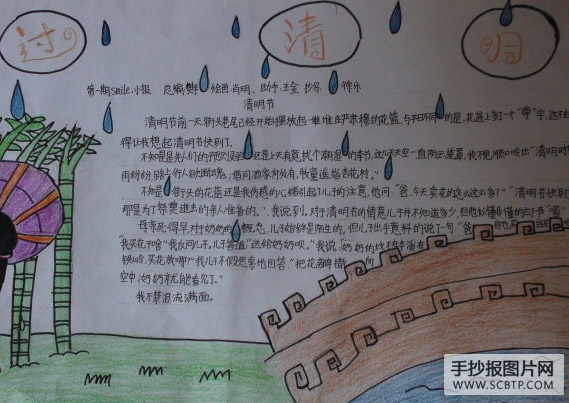 过 清 明
第一期smile小报 总编辑 绘画 肖玥 助手 王金 抄写
清明节
清明节前一天街头巷尾已经开始摆放起一堆堆庄严肃穆的花篮,与平日不同的是,花篮上多了一个“奠”字,这不由
得让我想起清明节快到了。
不知是先人们的预见灵验还是上天有意找个潮湿的季节,这天天空一直阴云笼罩,我不觉顺口吟出“清明时节
雨纷纷,路上行人欲断魂,借问酒家何处有,牧童遥指杏花村。”
不知是街头的花篮还是我伤感的心情引起了儿子的注意,他问“爸,今天卖花的怎么这么多?”“清明节快到
那是为了祭奠逝去的亲人准备的。”我说到。对于清明节的情意儿子并不知道多少,但他似懂非懂的
母亲死得早对于奶奶的概念,儿子始终是陌生的。但儿子出乎意料的说了一句“爸
“我买花干啥”我反问儿子,儿子答道“送给奶奶呗。”我说“奶奶的坟不在
铁岭,买花放哪?”我儿不假思索地回答“把花
空中,奶奶就能看见了。”
我不禁泪流满面。
手抄报图片网
WWW.SCBTP.COM